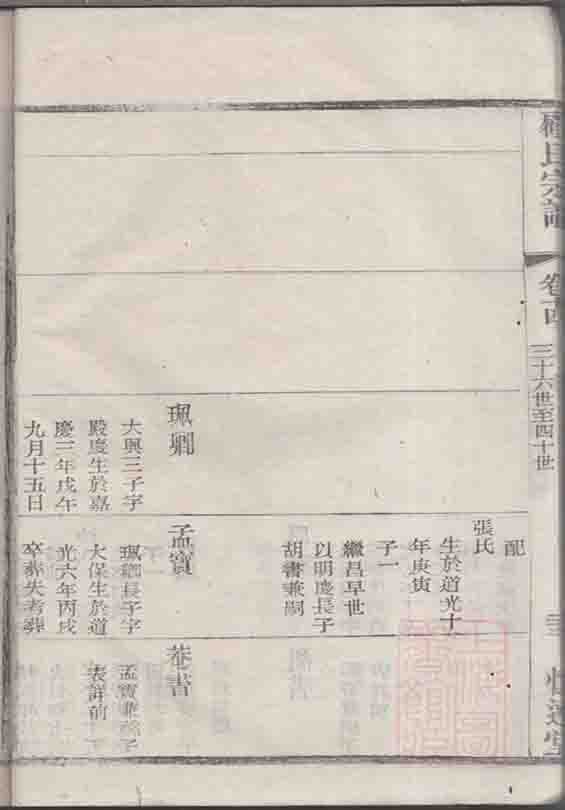 氏宗譜
卷十四
三十六世至四十世
珮卿
大興三子字
殿慶生於嘉
慶三年戊午
九月十五日
配
張氏
生於道光十
年庚寅
子一
繼昌早世
以明慶長子
胡書兼嗣
孟寶
珮卿長子字
大保生於道
光六年丙戌
卒葬失考葬
書
孟寶兼祧子
表詳前